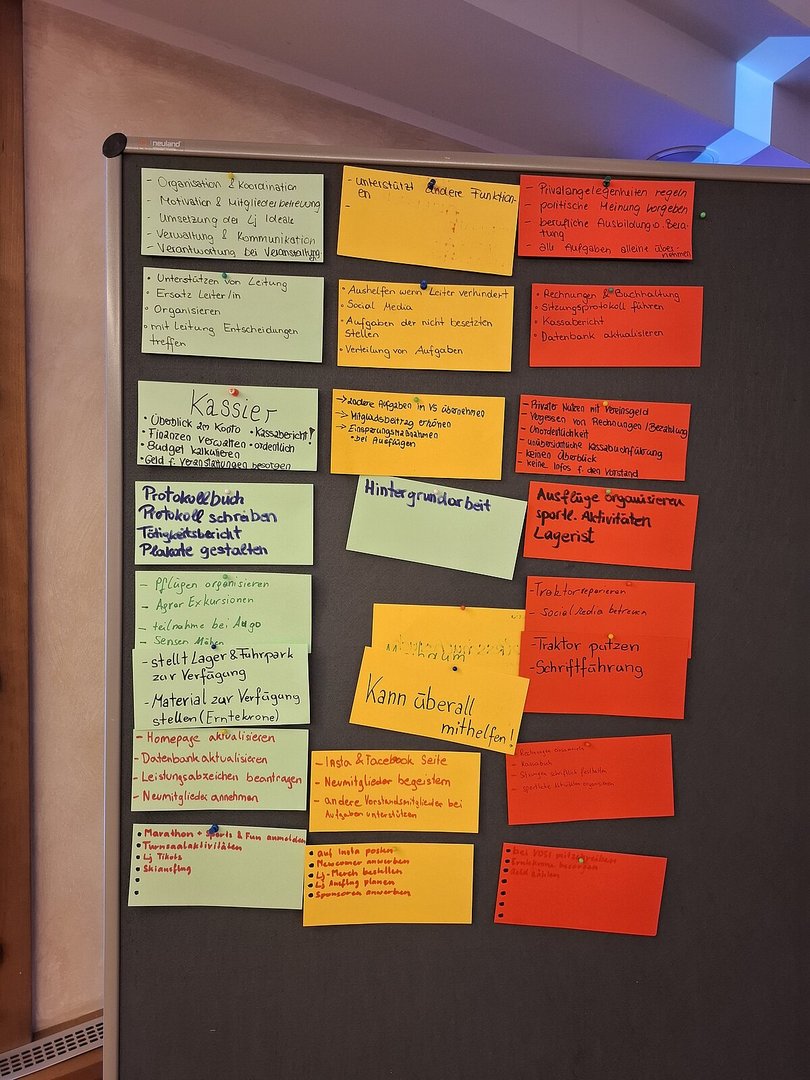 neuland
- Organisation & Koordination
- Motivation & Mitgliederbetreuung
- Umsetzung der Lj Ideale
- Verwaltung & Kommunikation
- Verantwortung bei Veranstaltungen
- unterstützt andere Funktion-
en
-
- Privatangelegenheiten regeln
- politische Meinung vorgeben
- berufliche Ausbildung o. Bera-
tung
- alle Aufgaben alleine über-
nehmen
• Unterstützen von Leitung
• Ersatz Leiter/in
• Organisieren
• mit Leitung Entscheidungen
treffen
• Aushelfen wenn Leiter verhindert
• Social Media
• Aufgaben der nicht besetzten
Stellen
• Verteilung von Aufgaben
• Rechnungen & Buchhaltung
• Sitzungsprotokoll führen
• Kassabericht
• Datenbank aktualisieren
Kassier
• Überblick am Konto • Kassabericht!
• Finanzen verwalten • ordentlich
• Budget kalkulieren
• Geld f. Veranstaltungen besorgen
→ andere Aufgaben in VS übernehmen
→ Mitgliedsbeitrag erhöhen
→ Einsparungsmaßnahmen
• bei Ausflügen
- Privater Nutzen mit Vereinsgeld
- Vergessen von Rechnungen/Bezahlung
- Unordentlichkeit
- unübersichtliche Kassabuchführung
- keinen Überblick
- keine Infos f. den Vorstand
Protokollbuch
Protokoll schreiben
Tätigkeitsbericht
Plakate gestalten
Hintergrundarbeit
Ausflüge organisieren
sportl. Aktivitäten
Lagerist
- Pflügen organisieren
- Agrar Exkursionen
- teilnahme bei Augo
- Sensen Mähen
- Traktor reparieren
- Social Media betreuen
- stellt Lager & Fuhrpark
zur Verfügung
- Material zur Verfügung
stellen (Erntekrone)
Kann überall
mithelfen!
- Traktor putzen
- Schriftführung
- Homepage aktualisieren
- Datenbank aktualisieren
- Leistungsabzeichen beantragen
- Neumitglieder annehmen
- Insta & Facebook Seite
- Neumitglieder begeistern
- andere Vorstandsmitglieder bei
Aufgaben unterstützen
- Rechnungen
- Kassabuch
- Sitzungen schriftlich festhalten
- sportliche Aktivitäten organisieren
• Marathon + Sports & Fun anmelden
• Turnsaalaktivitäten
• Lj Tikots
• Skiausflug
• auf Insta posten
• Newcomer anwerben
• Lj-Merch bestellen
• Lj Ausflug planen
• Sponsoren anwerben
• bei VOSI mitzuschreiben
• Erntekrone
• Geld zählen